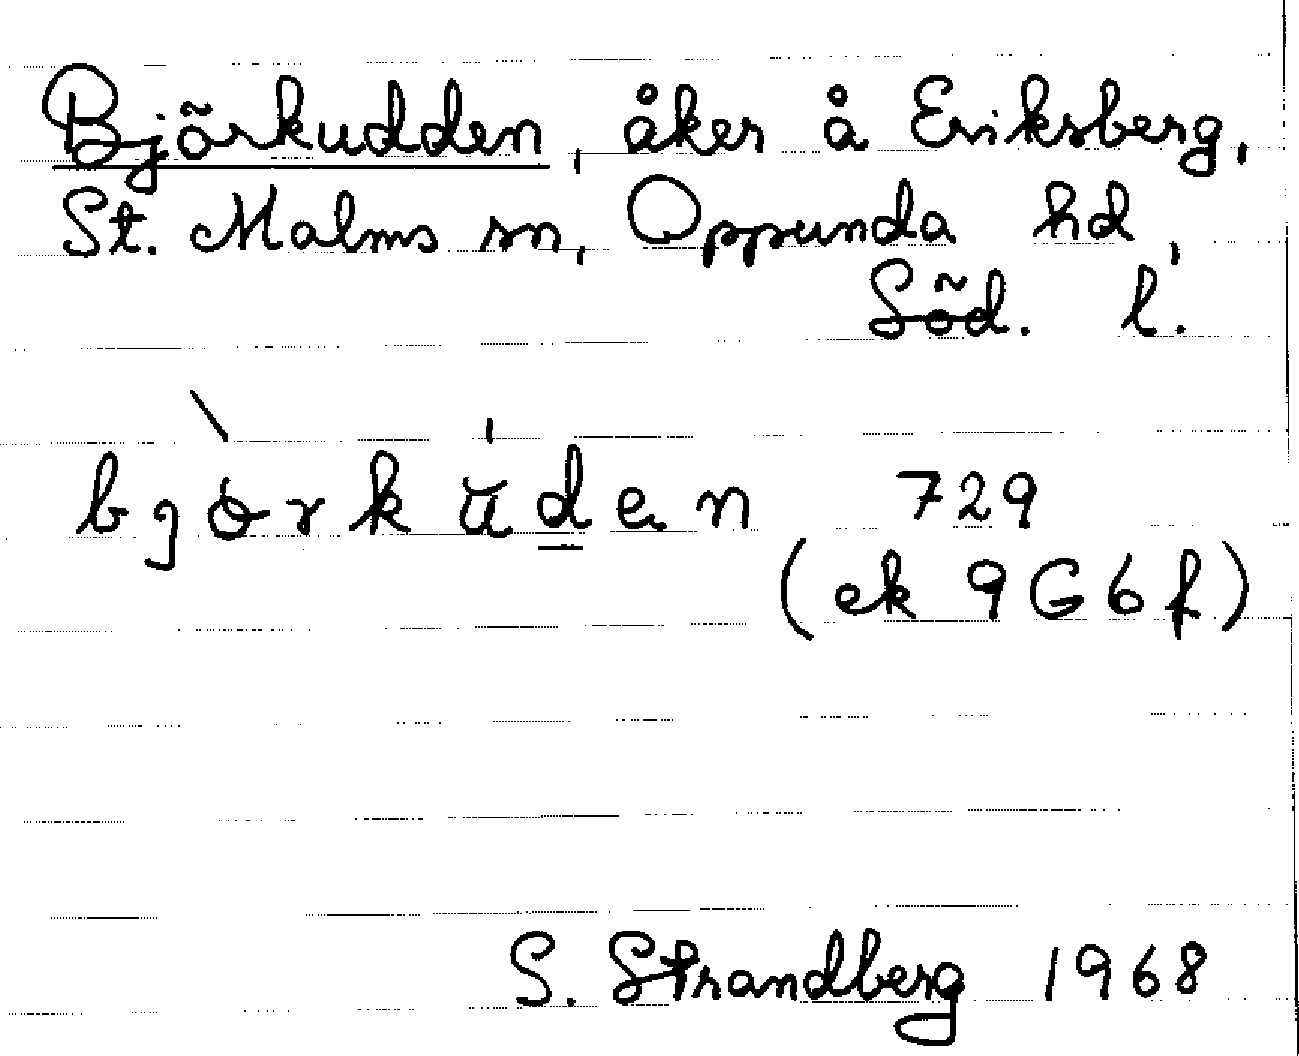 Björkudden, åker å Eriksberg,
St. Malms sn, Oppunda hd,
Söd. l.
bjòrkŭden 729
(ek 9G6f)
S. Strandberg 1968